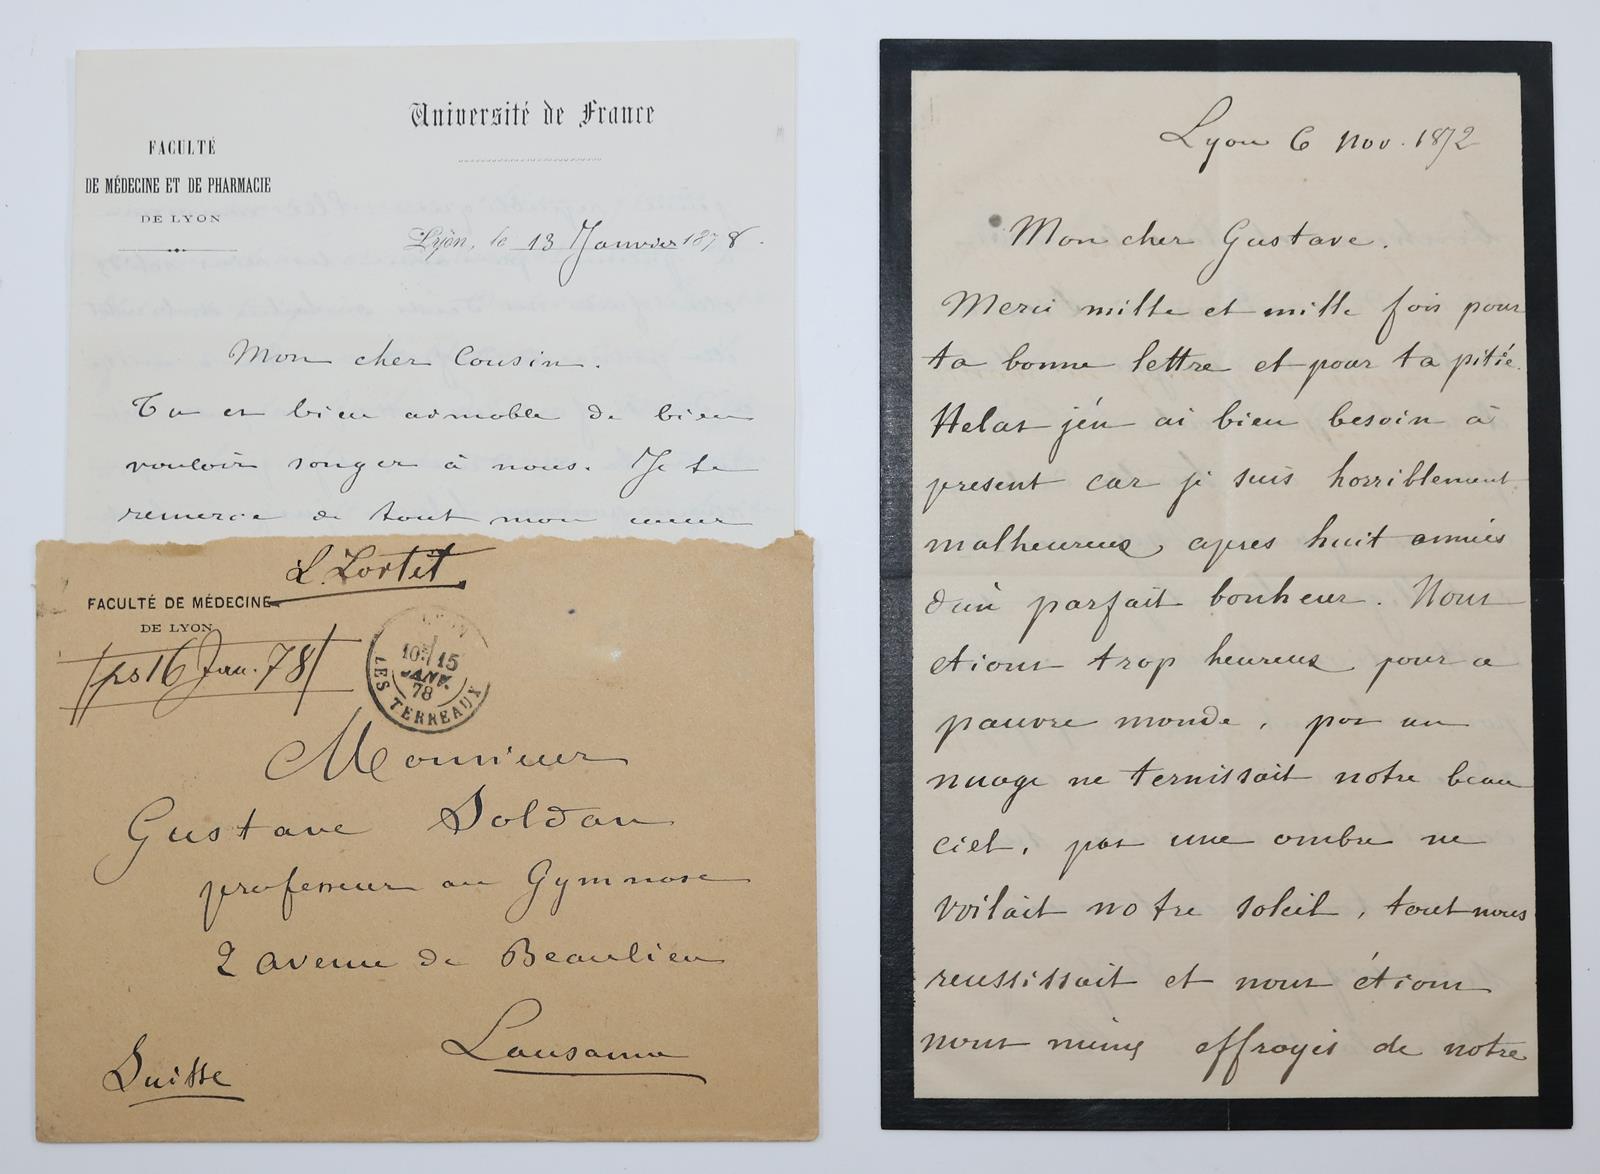 Université de France
FACULTÉ
DE MÉDECINE ET DE PHARMACIE
DE LYON
Lyon, le 13 Janvier 1878.
Mon cher Cousin.
Tu es bien aimable de bien
vouloir songer à nous. Je te
remercie de tout mon cœur
L. Lortet
FACULTÉ DE MÉDECINE
DE LYON
16 Jan. 78
LYON
10 15
JANV.
78
LES TERREAUX
Monsieur
Gustave Soldan
professeur au Gymnase
2 avenue de Beaulieu
Lausanne
Suisse
Lyon 6 Nov. 1872
Mon cher Gustave.
Merci mille et mille fois pour
ta bonne lettre et pour ta pitié.
Helas j'en ai bien besoin à
present car je suis horriblement
malheureux, apres huit années
d'un parfait bonheur. Nous
etions trop heureux pour ce
pauvre monde, pas un
nuage ne ternissait notre beau
ciel, pas une ombre ne
voilait notre soleil, tout nous
reussissait et nous étions
nous mêmes effrayés de notre